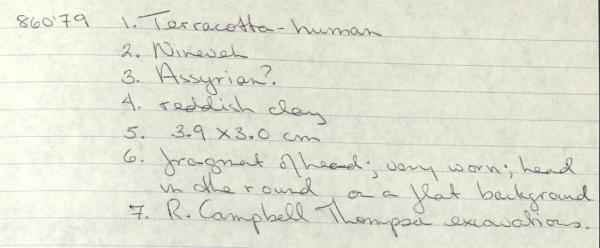 860'79 1. Terracotta - human
2. Nineveh
3. Assyrian?
4. reddish clay
5. 3.9 x 3.0 cm
6. fragment of head; very worn; head
in the round on a flat background
7. R. Campbell Thompson excavations.